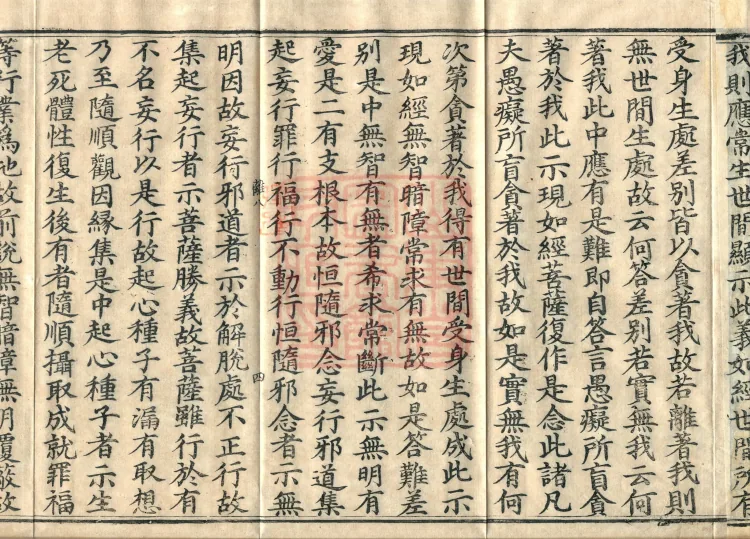 我則應常生世間顯示此義如經世間所有
受身生處差別皆以貪著我故若離著我則
無世間生處故云何答差別若實無我云何
著我此中應有是難即自答言愚癡所盲貪
著於我此示現如經菩薩復作是念此諸凡
夫愚癡所盲貪著於我故如是實無我有何
次第貪著於我得有世間受身生處成此示
現如經無智暗障常求有無故如是答難差
別是中無智有無者希求常斷此示無明有
愛是二有支根本故恒隨邪念妄行邪道集
起妄行罪行福行不動行恒隨邪念者示無
四
明因故妄行邪道者示於解脫處不正行故
集起妄行者示菩薩勝義故菩薩雖行於有
不名妄行以是行故起心種子有漏有取想
乃至隨順觀因緣集是中起心種子者示生
老死體性復生後有者隨順攝取成就罪福
等行業為地故前說無智暗障無明覆蔽故